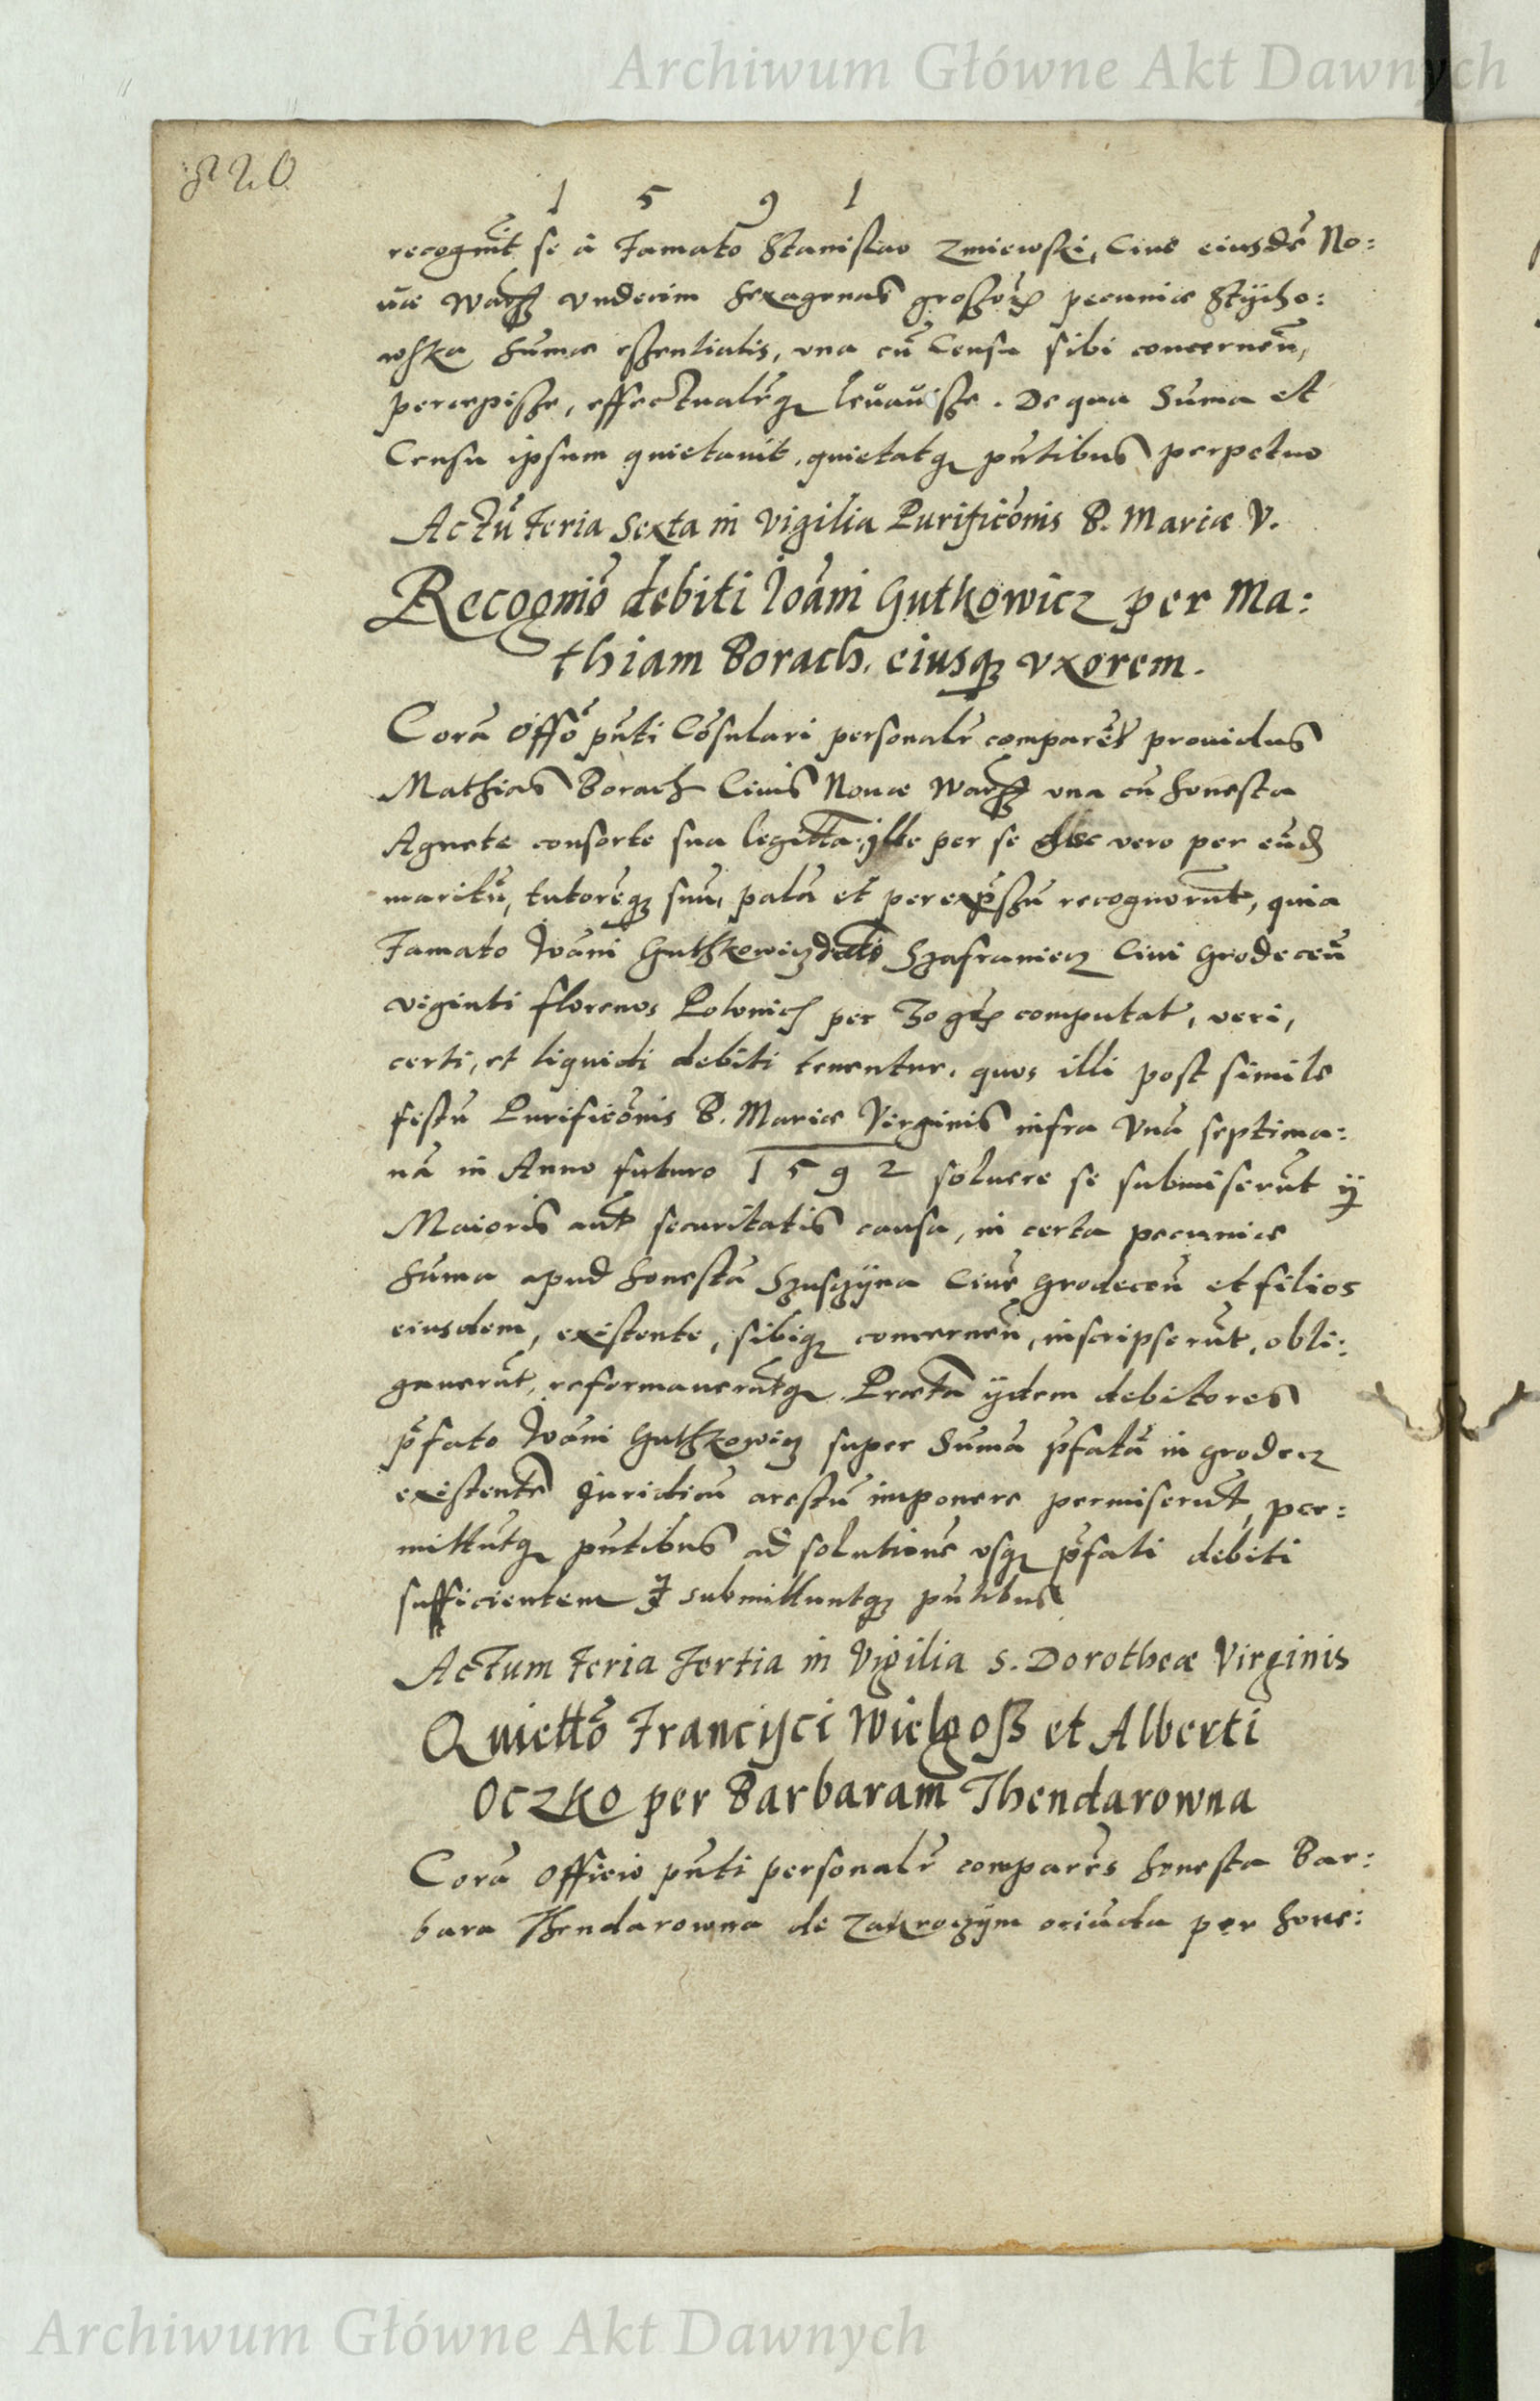 Archiwum Główne Akt Dawnych
820
1 5 9 1
recognũt se à Famato Stanislao Zmiewski, Cive eiusdẽ No:
væ Warß Vndecim sexagenas großorꝝ pecuniæ Stÿcho:
wska sum̃æ eßentialis, vna cũ Censu sibi concernen̄,
percepiße, effectualr̃qꝫ levaviße. De qua Sum̃a et
Censu ipsum quietavit, quietatqꝫ pñtibus perpetuo
Actũ Feria Sexta in Vigilia Purificõnis B. Mariæ V.
Recognio͂ debiti Ioãni Gutkowicz per Ma:
thiam Borach, eiusqꝫ vxorem.
Corã Offõ pñti Cõsulari personalr̃ comparẽs prouidus
Mathias Borach Ciuis Nouæ Warß vna cũ honesta
Agnete consorte sua legitt̃a, ille per se hæc vero per eũd
maritũ, tutorẽqꝫ suũ, palã et per expßũ recognorũt, quia
Famato Ioãni Guthkowicz dicto Szafraniecz Ciui Grodecen̄
viginti florenos Polonicꝭ per 30 grꝝ computat, veri,
certi, et liquidi debiti tenentur, quos illi post simile
festũ Purificõnis B. Mariæ Virginis infra Vnã septima:
nã in Anno futuro 1592 soluere se submiserũt ÿ
Maioris aũt securitatis causa, in certa pecuniæ
sum̃a apud honestã Szuszÿna Ciuẽ Grodecen̄ et filios
eiusdem, existente, sibiqꝫ concernen̄, inscripserũt, obli:
gauerũt, reformauerũtqꝫ. Præt̃a ÿdem debitores
p̃fato Ioãni Guthkowicz super Sum̃ã p̃fatã in Grodecz
existentẽ Juridicũ arestũ imponere permiserũt, per:
mittũtqꝫ pñtibus ad solutionẽ vsqꝫ p̃fati debiti
sufficientem submittuntqꝫ pñtibus
Actum Feria Tertia in Vigilia S. Dorotheæ Virginis
Quiett̃o Francisci Wielgoß et Alberti
Oczko per Barbaram Thendarowna
Corã Officio pñti personalr̃ comparẽs honesta Bar:
bara Thendarowna de Zakroczÿm oriũda per hone:
Archiwum Główne Akt Dawnych